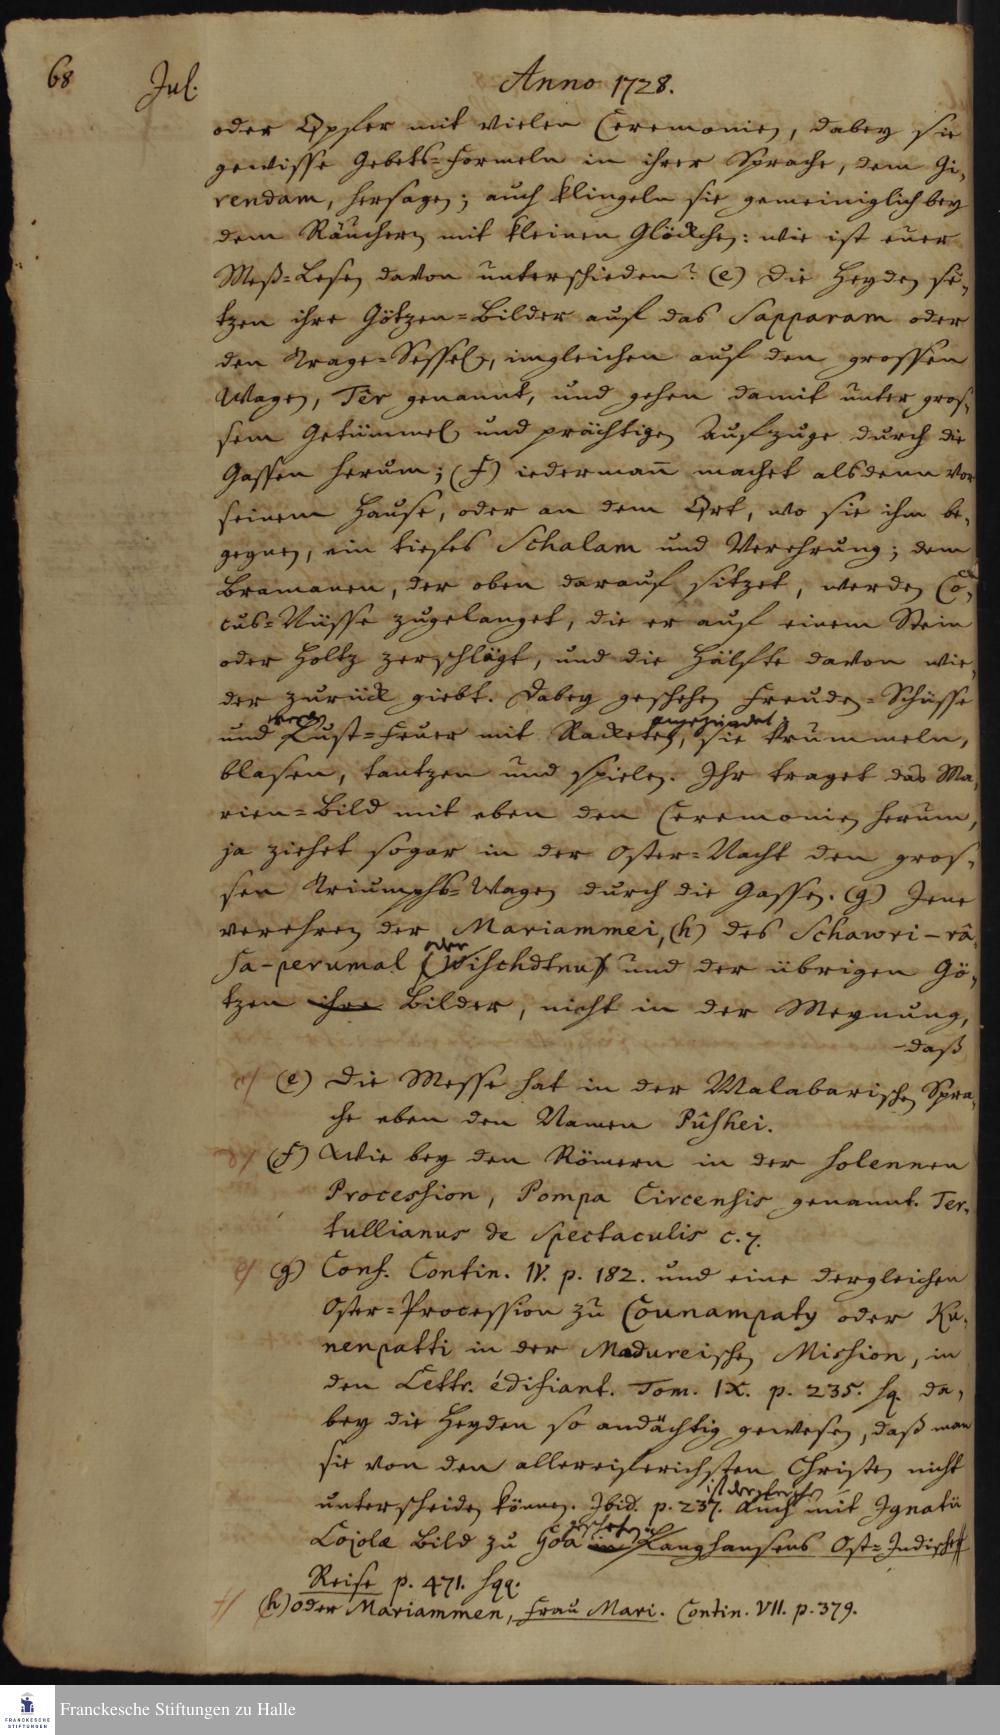 68
Jul.
Anno 1728.
oder Opfer mit vielen Ceremonien, dabey sie
gewisse Gebets=Formeln in ihrer Sprache, dem Gi-
rendam, hersagen; auch klingeln sie gemeiniglich bey
dem Räuchern mit kleinen Glöckchen: wie ist euer
Meß=Lesen davon unterschieden? (e) Die Heyden se-
tzen ihre Götzen=Bilder auf das Sapparam oder
den Trage=Sessel, imgleichen auf den grossen
Wagen, Têr genannt, und gehen damit unter gros-
sem Getümmel und prächtigen Aufzuge durch die
Gassen herum; (f) iedermañ machet alsdenn vor
seinem Hause, oder an dem Ort, wo sie ihm be-
gegnen, ein tiefes Schalam und Verehrung; dem
Bramanen, der oben darauf sitzet, werden Co-
cus=Nüsse zugelanget, die er auf einem Stein
oder Holtz zerschlägt, und die Hälfte davon wie-
der zurück giebt. Dabey geschehen Freuden=Schüsse
werden angezündet;
und Lust=Feuer mit Racketen, sie trummeln,
blasen, tantzen und spielen. Ihr traget das Ma-
rien=Bild mit eben den Ceremonien herum,
ja ziehet sogar in der Oster=Nacht den gros-
sen Triumphs=Wagen durch die Gassen. (g) Jene
verehren der Mariammei, (h) des Schawri-râ-
oder
sa-perumal (Wischdtnu) und der übrigen Gö-
tzen ihre Bilder, nicht in der Meynung,
daß
c/ (e) Die Messe hat in der Malabarischen Spra-
che eben den Namen Pûshei.
d/ (f) Wie bey den Römern in der solennen
Procession, Pompa Circensis genannt. Ter-
tullianus de Spectaculis c. 7.
e/ (g) Conf. Contin. IV. p. 182. und eine dergleichen
Oster=Procession zu Counampaty oder Ku-
nenpatti in der Madureischen Mission, in
den Lettr. édifiant. Tom. IX. p. 235. sq. da-
bey die Heyden so andächtig gewesen, daß man
sie von den allereiferichsten Christen nicht
ist dergleichen
unterscheiden können. Ibid. p. 237. Auch mit Ignatii
geschehen
Lojolæ Bild zu Goa Langhansens Ost=Indische
Reise p. 471. sqq.
f/ (h) oder Mariammen, Frau Mari. Contin. VII. p. 379.
FRANCKESCHE
STIFTUNGEN
Franckesche Stiftungen zu Halle